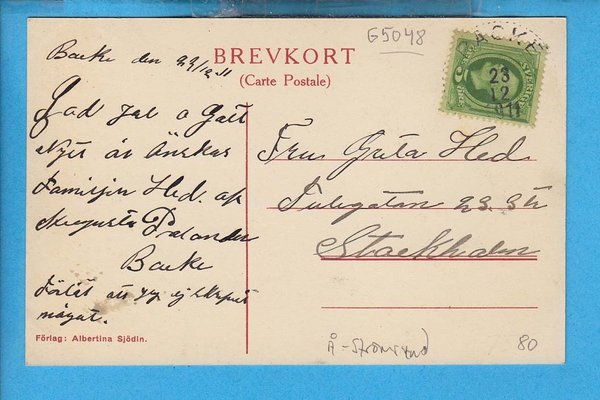 G5048
BREVKORT
(Carte Postale)
BACKE
23
12
11
SVERIGE
Backe den 23/12 11
God Jul o Gott
Nytt år Önskas
Familjen Hed. af
Augusta Palander
Backe
Förlåt att jag ej skrifvit
något.
Förlag: Albertina Sjödin.
Fru Greta Hed
Tulegatan 23. 3 tr
Stockholm
Å-Strömsund
80